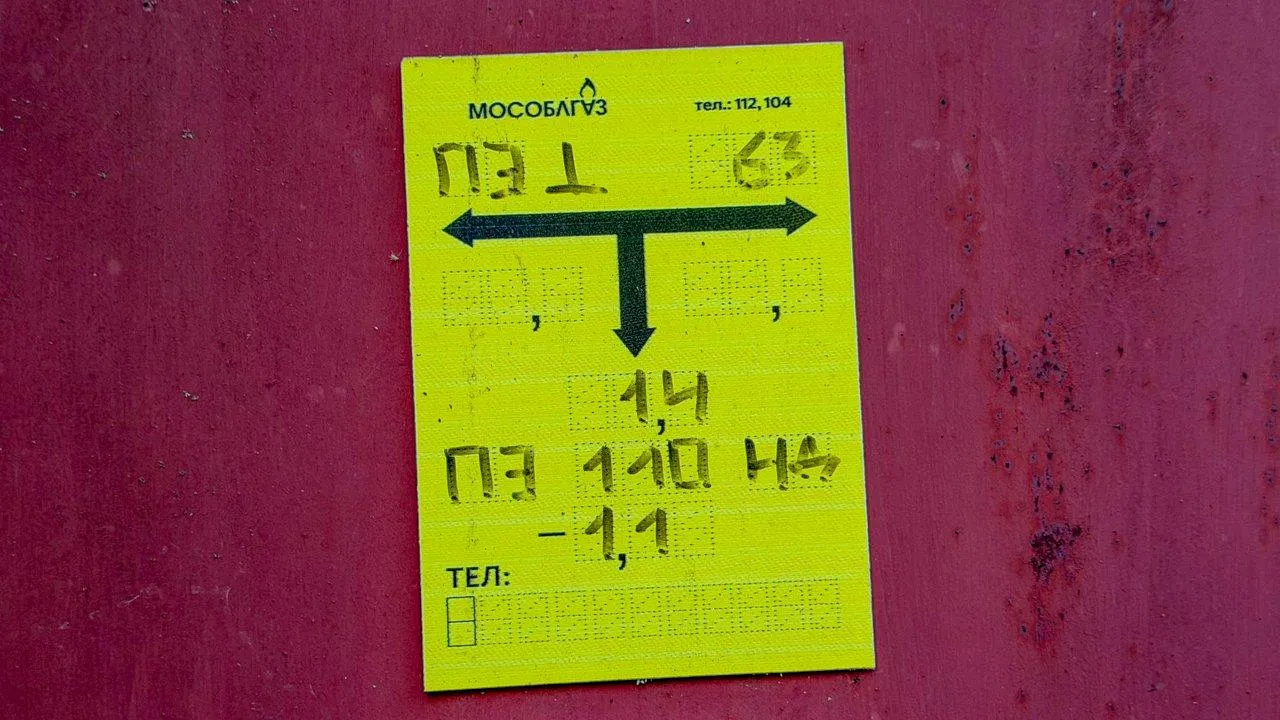 МОСОБЛГАЗ тел.: 112, 104
ПЭ ⊥ 63
, ,
1,4
ПЭ 110 НД
-1,1
ТЕЛ: